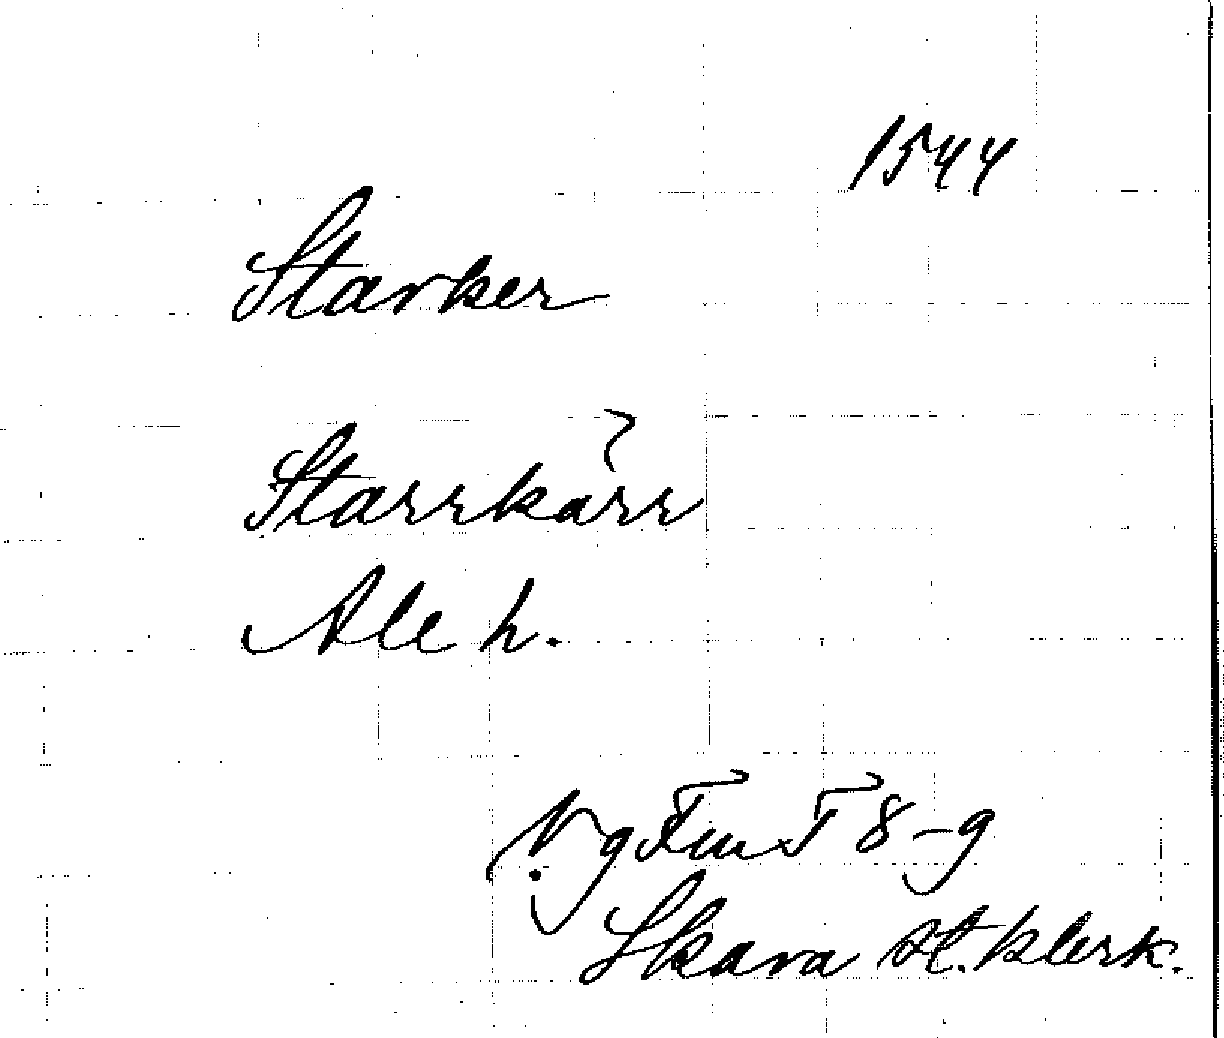 1544
Starker
Starrkärr
Ale h.
VgFmT 8-9
Skara st. klerk.